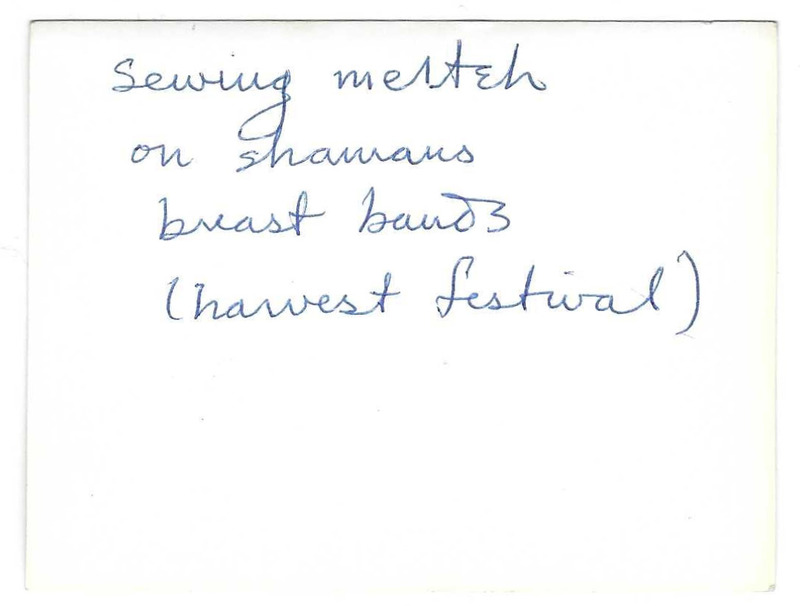 Sewing melteh
on shamans
breast bands
(harvest festival)